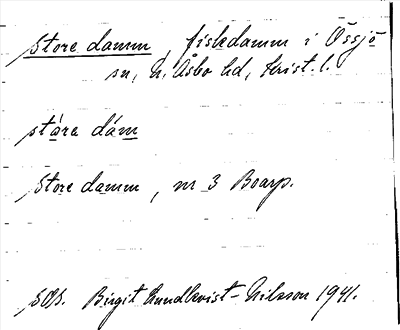 Store damm, fiskdamm i Össjö
sn, N. Åsbo hd, Krist. l.
stóra dám
Store damm, nr 3 Boarp.
Birgit Lundkvist-Nilsson 1941.